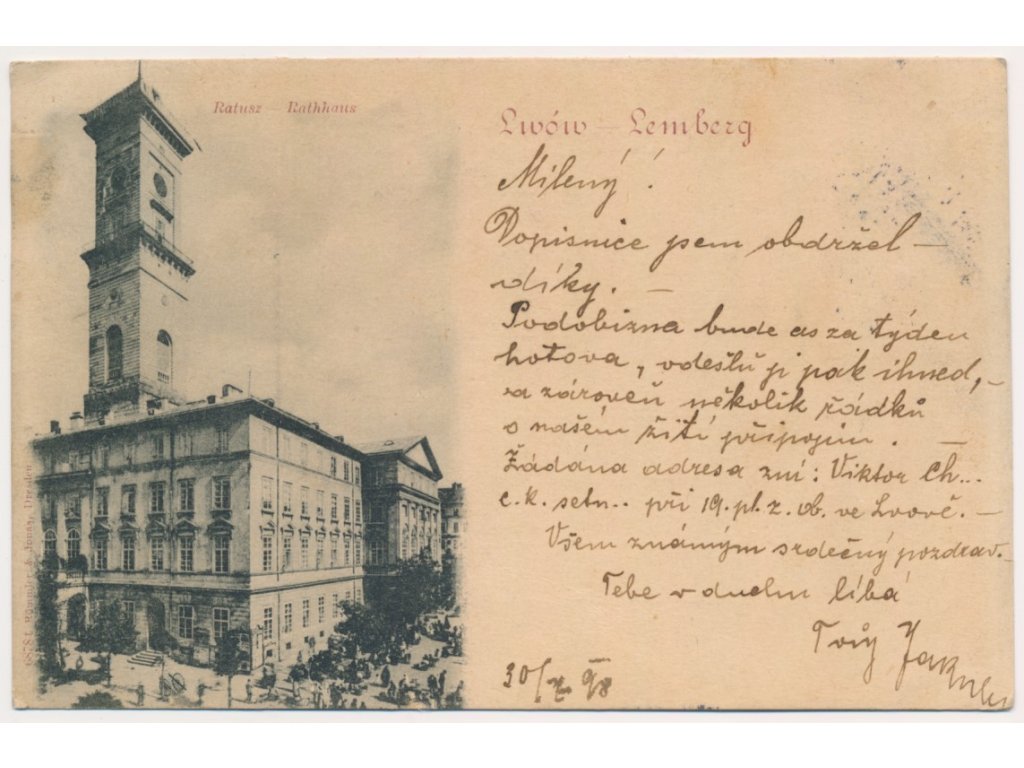 Ratusz — Rathhaus
Lwów — Lemberg
Milený!
Dopisnice jsem obdržel —
díky. —
Podobizna bude as za týden
hotova, odešlu ji pak ihned, —
a zároveň několik řádků
o našem žití připojím. —
Žádána adresa zní: Viktor Ch...
c. k. setn.. při 19. pl. z. ob. ve Lvově. —
Všem známým srdečný pozdrav.
Tebe v duchu líbá
Tvůj
30/ 98
& Jonas, Dresden